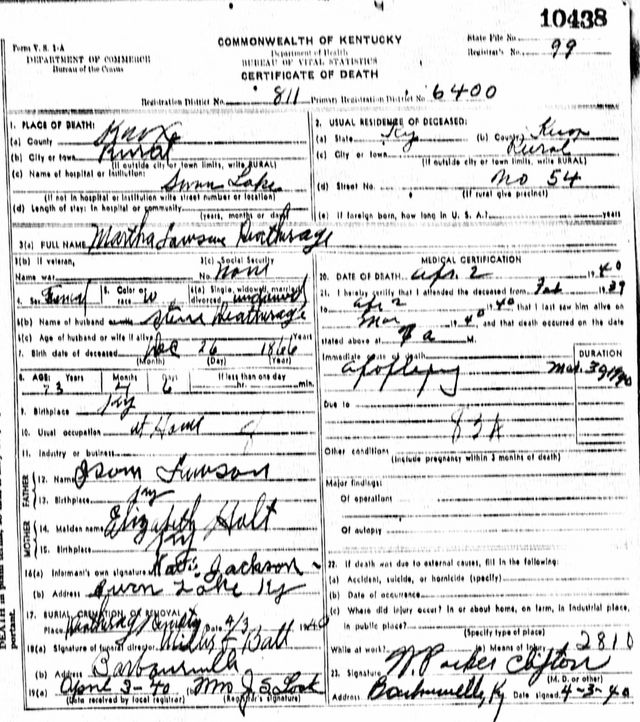 10438
Form V. S. 1-A
DEPARTMENT OF COMMERCE
Bureau of the Census
COMMONWEALTH OF KENTUCKY
Department of Health
BUREAU OF VITAL STATISTICS
CERTIFICATE OF DEATH
State File No.
Registrar's No. 99
Registration District No. 811 Primary Registration District No. 6400
1. PLACE OF DEATH:
(a) County Knox
(b) City or town Rural
(If outside city or town limits, write RURAL)
(c) Name of hospital or institution:
Swan Lake
(If not in hospital or institution write street number or location)
(d) Length of stay: In hospital or community
(years, months or days)
2. USUAL RESIDENCE OF DECEASED:
(a) State Ky (b) County Knox
(c) City or town Rural
(If outside city or town limits, write RURAL)
(d) Street No. No 54
(If rural give precinct)
(e) If foreign born, how long in U. S. A.? years
3(a) FULL NAME Martha Lawson
3(b) If veteran, Name war
3(c) Social Security No. None
4. Sex Female 5. Color or race W 6(a) Single, widowed, married, divorced widowed
6(b) Name of husband or wife Steve
6(c) Age of husband or wife if alive
7. Birth date of deceased Dec 26 1866
(Month) (Day) (Year)
8. AGE: Years Months Days If less than one day
73 6 hr. min.
9. Birthplace Ky
10. Usual occupation at Home
11. Industry or business
FATHER
12. Name Isom Lawson
13. Birthplace Ky
MOTHER
14. Maiden name Elizabeth Holt
15. Birthplace Ky
16(a) Informant's own signature Jackson
(b) Address Swan Lake Ky
17. BURIAL, CREMATION OR REMOVAL
Place Date 4/3 1940
18(a) Signature of funeral director
(b) Address Barbourville
19(a) April 3-40 (b) Mrs J. S. Lock
(Date received by local registrar) (Registrar's signature)
MEDICAL CERTIFICATION
20. DATE OF DEATH Apr. 2 1940
21. I hereby certify that I attended the deceased from Feb 1939
to Apr 2 1940 that I last saw him alive on
Mar 1940 and that death occurred on the date
stated above at a M.
Immediate cause of death DURATION
apoplexy Mar. 30 1940
Due to
83a
Other conditions
(Include pregnancy within 3 months of death)
Major findings:
Of operations
Of autopsy
22. If death was due to external causes, fill in the following:
(a) Accident, suicide, or homicide (specify)
(b) Date of occurrence
(c) Where did injury occur? In or about home, on farm, in industrial place,
in public place?
(Specify type of place)
While at work? (e) Means of injury 2810
23. Signature W. Parker Clifton
(M. D. or other)
Address Barbourville, Ky Date signed 4-3-40